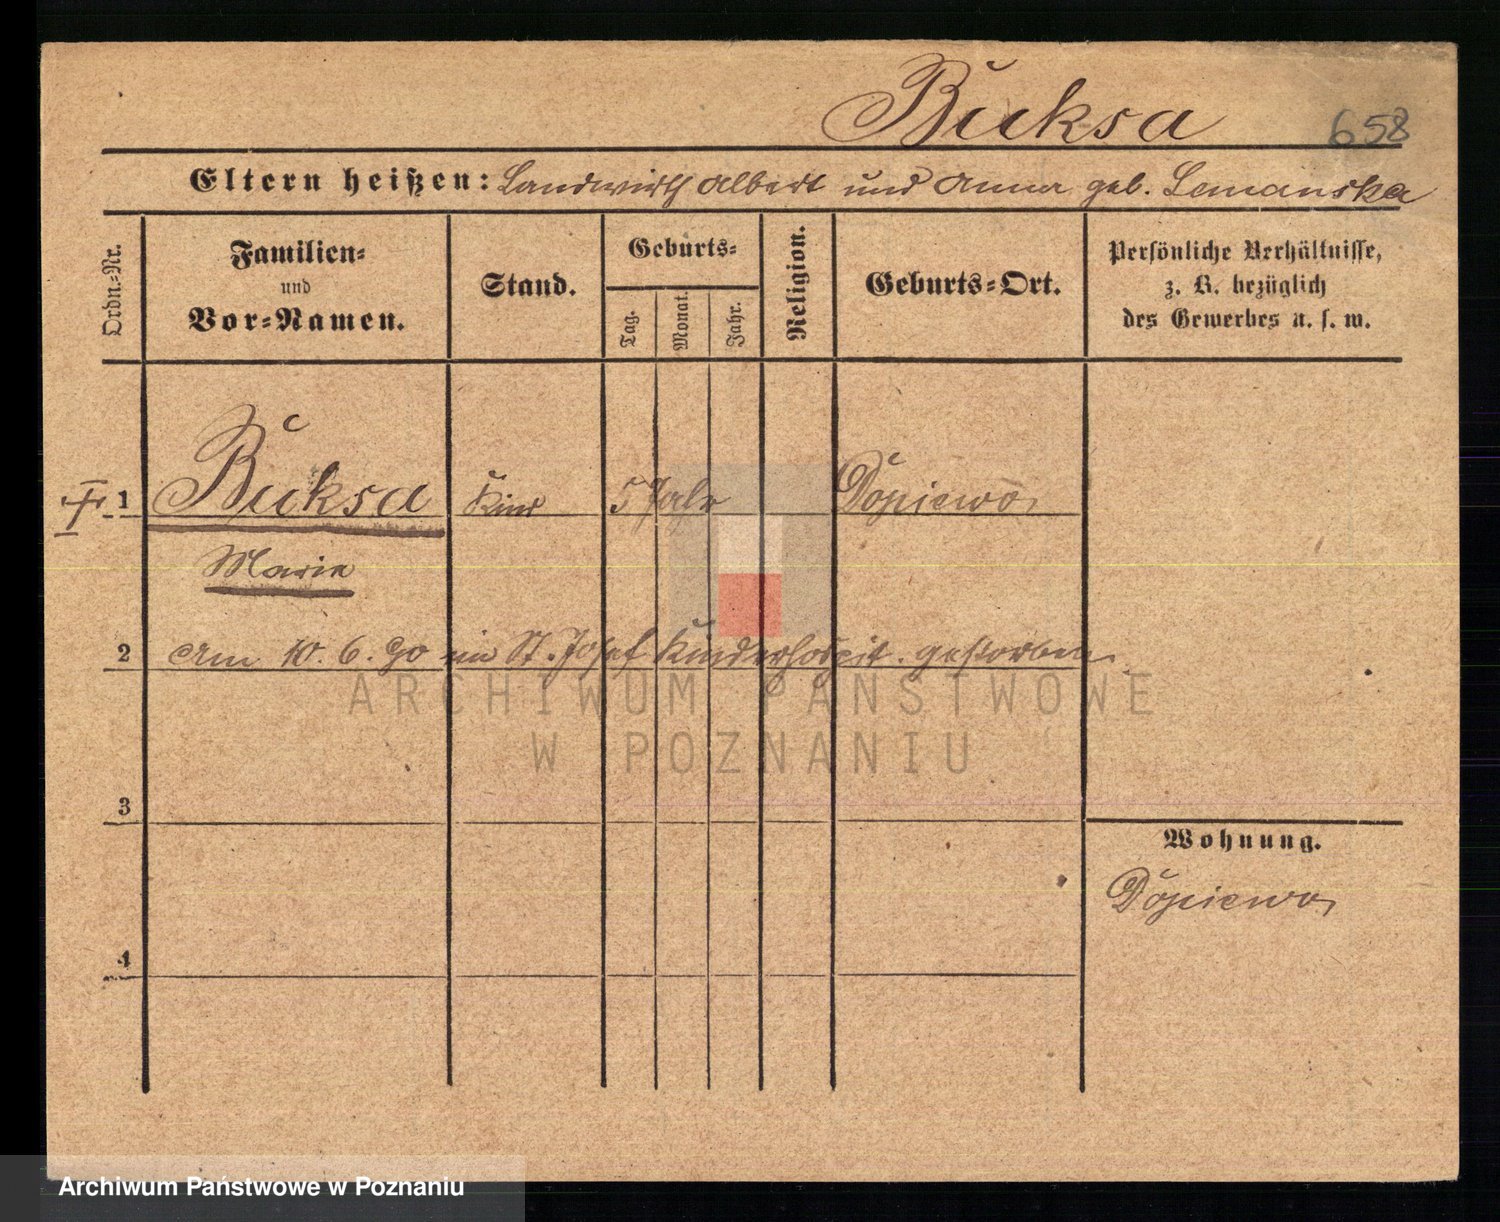 Buksa 658
Eltern heißen: Landwirth Albert und Anna geb. Lemanska
Ordn.-Nr.
Familien-
und
Vor-Namen.
Stand.
Geburts-
Tag.
Monat.
Jahr.
Religion.
Geburts-Ort.
Persönliche Verhältnisse,
z. B. bezüglich
des Gewerbes u. s. w.
1 Buksa Kind 5 Jahr Dopiewo
Marie
2 Am 10. 6. 90 im St. Josef Kinderhospit. gestorben.
ARCHIWUM PAŃSTWOWE
W POZNANIU
3
Wohnung.
Dopiewo
4
Archiwum Państwowe w Poznaniu